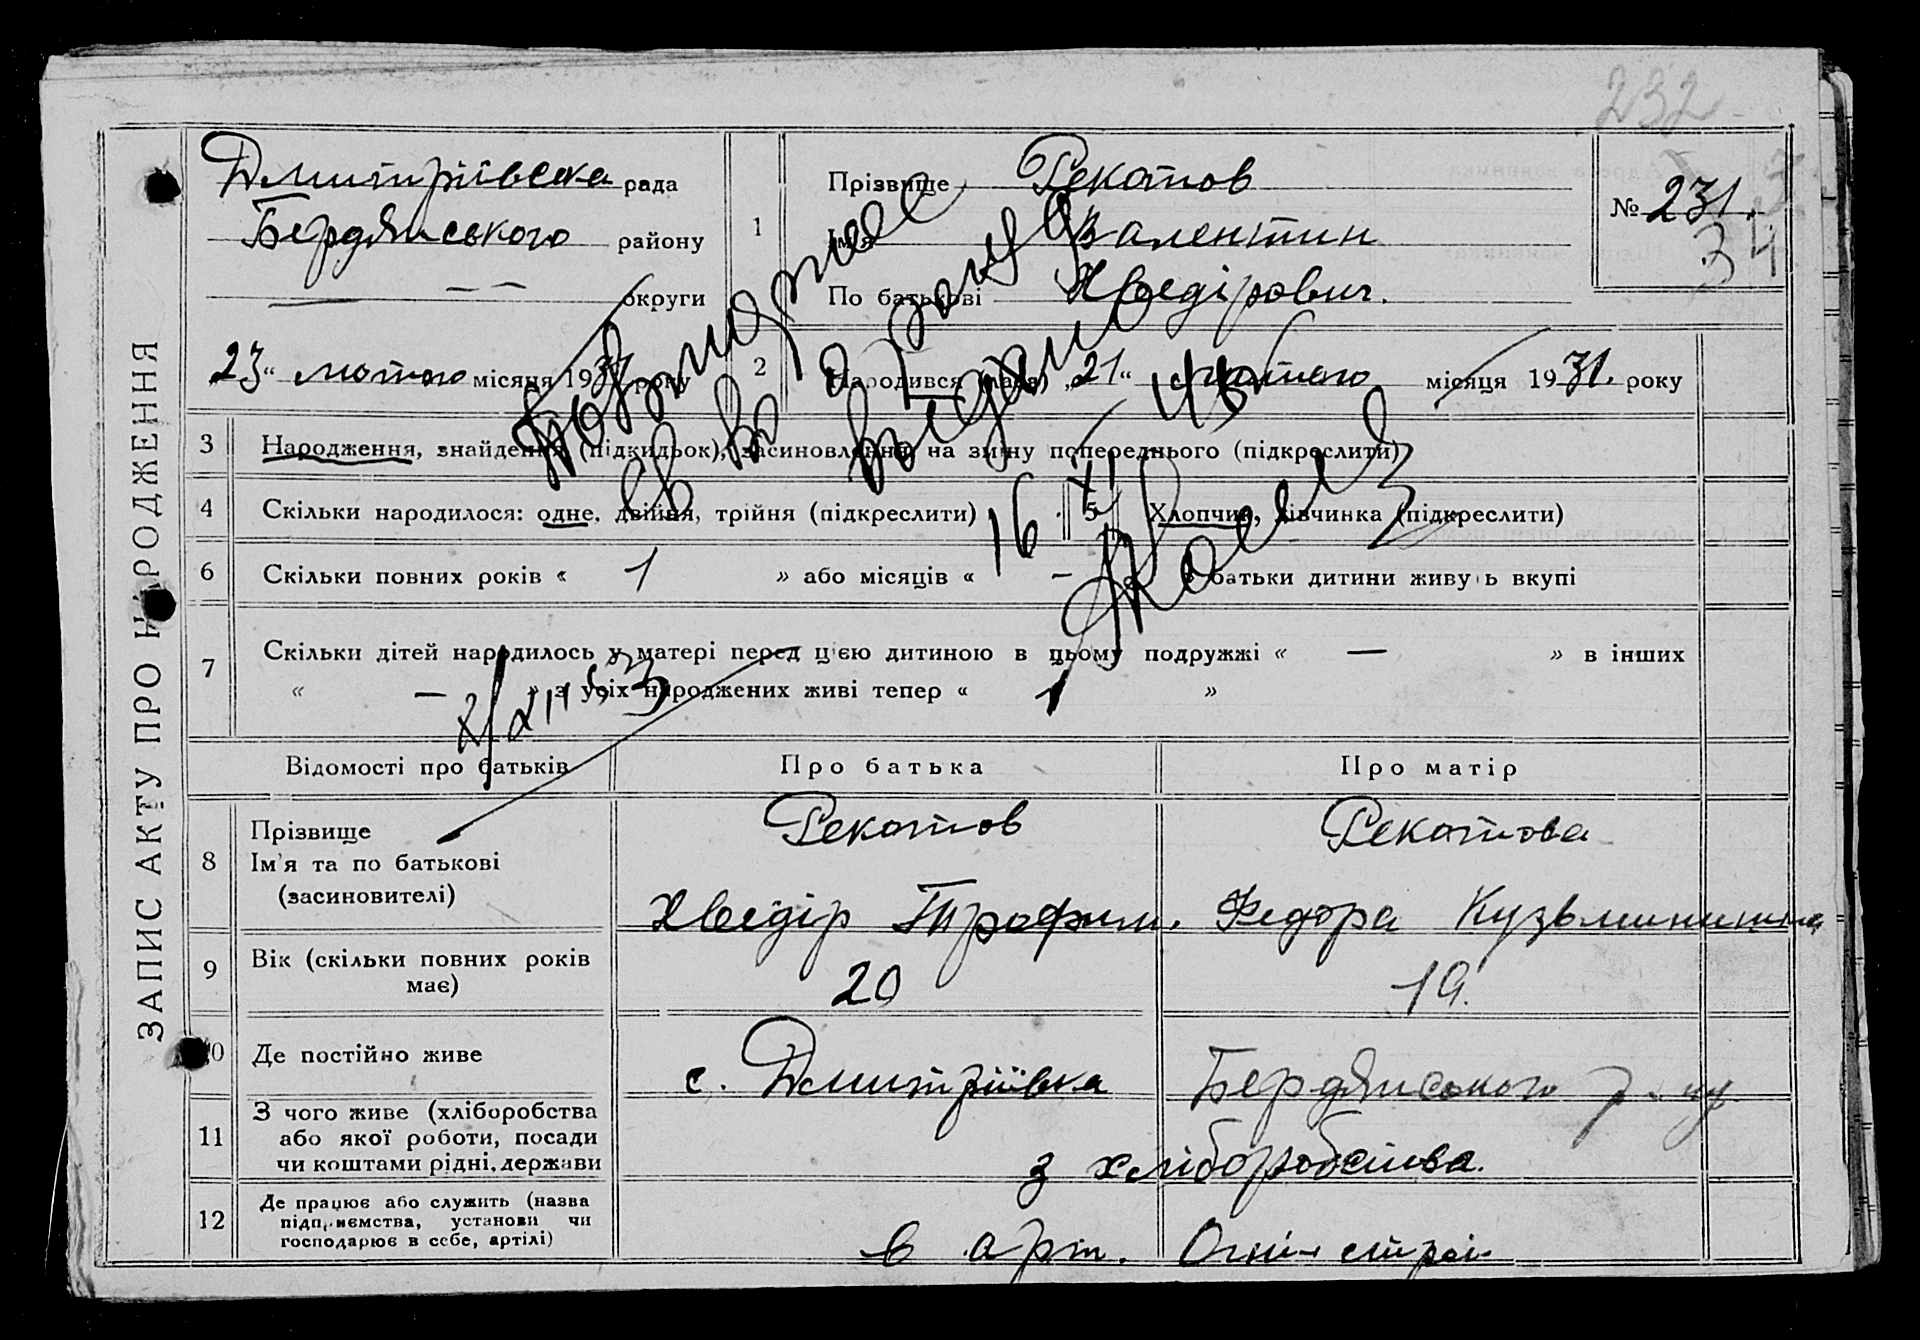 232
ЗАПИС АКТУ ПРО НАРОДЖЕННЯ
Дмитріївська рада
Бердянського району
округи
1
Прізвище Рекотов
Ім'я Валентин
По батькові Хведірович.
№ 231.
34
23 “ лютого місяця 1931 року
2
Народився (лася) „21“ лютого місяця 1931. року
Повторное
св во
выдано
16
XI
3 Народження, знайдення (підкидьок), засиновлення, на зміну попереднього (підкреслити)
4 Скільки народилося: одне, двійня, трійня (підкреслити)
5 Хлопчик, дівчинка (підкреслити)
6 Скільки повних років « 1 » або місяців « — » батьки дитини живуть вкупі
7 Скільки дітей народилось у матері перед цією дитиною в цьому подружжі « — » в інших
« — » з усіх народжених живі тепер « 1 »
Відомості про батьків Про батька Про матір
8 Прізвище
Ім'я та по батькові
(засиновителі)
Рекотов
Хведір Трофим.
Рекотова
Федора Кузьминишна
9 Вік (скільки повних років
має)
20 19.
10 Де постійно живе
с. Дмитріївка Бердянського р-ну
11 З чого живе (хліборобства
або якої роботи, посади
чи коштами рідні, держави
з хліборобства.
12 Де працює або служить (назва
підприємства, установи чи
господарює в себе, артілі)
в арт.